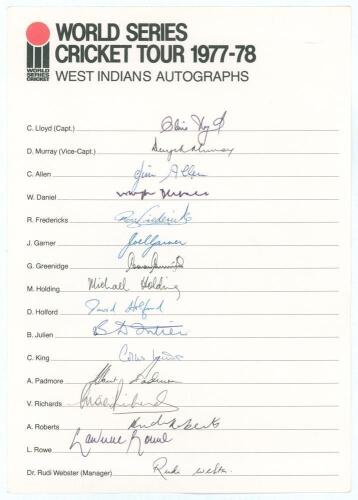 WORLD SERIES
CRICKET TOUR 1977-78
WEST INDIANS AUTOGRAPHS
WORLD
SERIES
CRICKET
C. Lloyd (Capt.) Clive Lloyd
D. Murray (Vice-Capt.) Deryck Murray
C. Allen Jim Allen
W. Daniel
R. Fredericks Roy Fredericks
J. Garner Joel Garner
G. Greenidge
M. Holding Michael Holding
D. Holford David Holford
B. Julien B D Julien
C. King Collis King
A. Padmore Albert Padmore
V. Richards
A. Roberts Andy Roberts
L. Rowe Lawrence Rowe
Dr. Rudi Webster (Manager) Rudi Webster